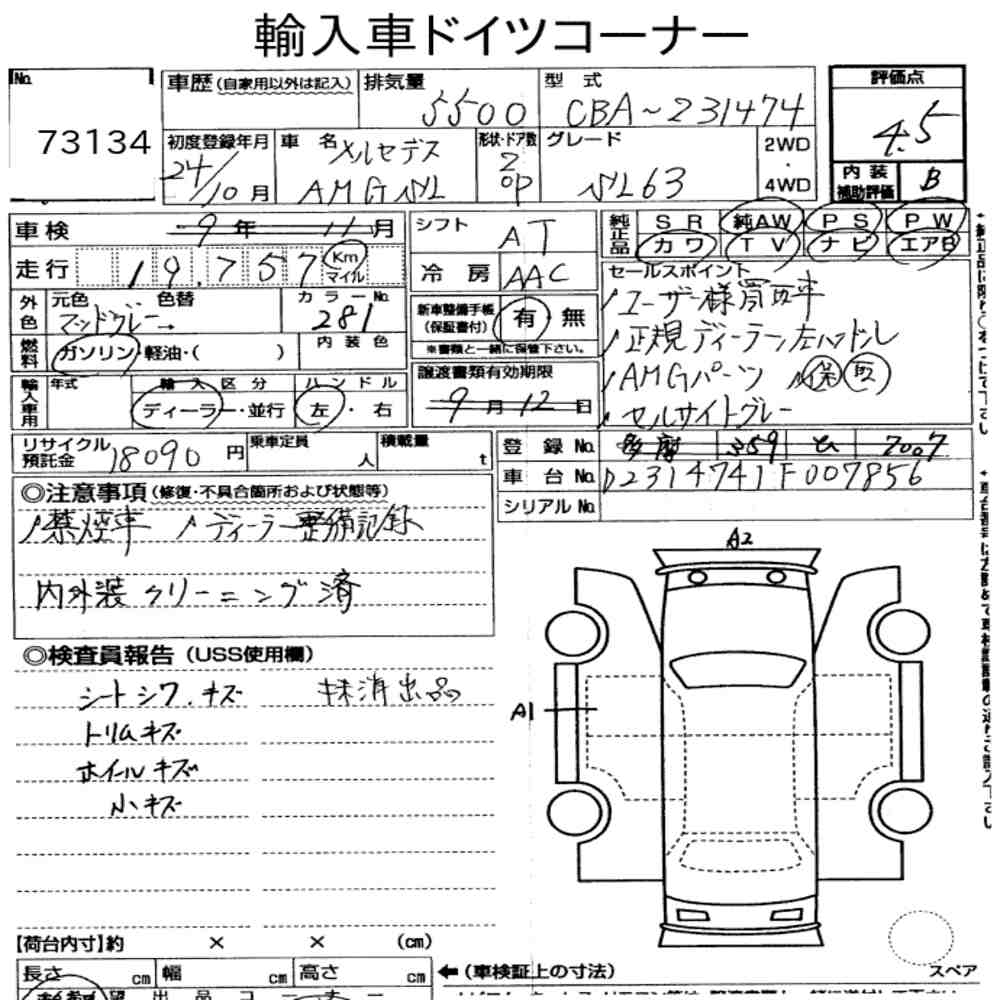 輸入車ドイツコーナー
No. 73134
車歴(自家用以外は記入) 排気量 5500 型式 CBA-231474 評価点 4.5
初度登録年月 24/10月 車名 メルセデス AMG SL 形状・ドア数 2 OP グレード SL63 2WD・4WD
内装補助評価 B
車検 9年11月
走行 19,757 Km マイル
外色 元色 マットグレー 色替 → カラーNo. 281
内装色
燃料 ガソリン・軽油・( )
輸入車用 年式 輸入区分 ディーラー・並行 ハンドル 左・右
シフト AT
冷房 AAC
新車整備手帳(保証書付) 有・無
※書類と一緒に保管下さい。
譲渡書類有効期限
9月12日
純正品 SR 純AW PS PW
カワ TV ナビ エアB
セールスポイント
ユーザー様買取車
正規ディーラー左ハンドル
AMGパーツ 保 取
セルサイトグレー
リサイクル預託金 18090円 乗車定員 人 積載量 t
登録No. 多摩 359 ひ 7007
車台No. D2314741F007856
シリアルNo.
◎注意事項(修復・不具合箇所および状態等)
禁煙車 ディーラー整備記録
内外装クリーニング済
◎検査員報告(USS使用欄)
シートシワ、キズ 抹消出品
トリムキズ
ホイルキズ
小キズ
A2
A1
【荷台内寸】約 × × (cm)
長さ cm 幅 cm 高さ cm
←(車検証上の寸法)
スペア